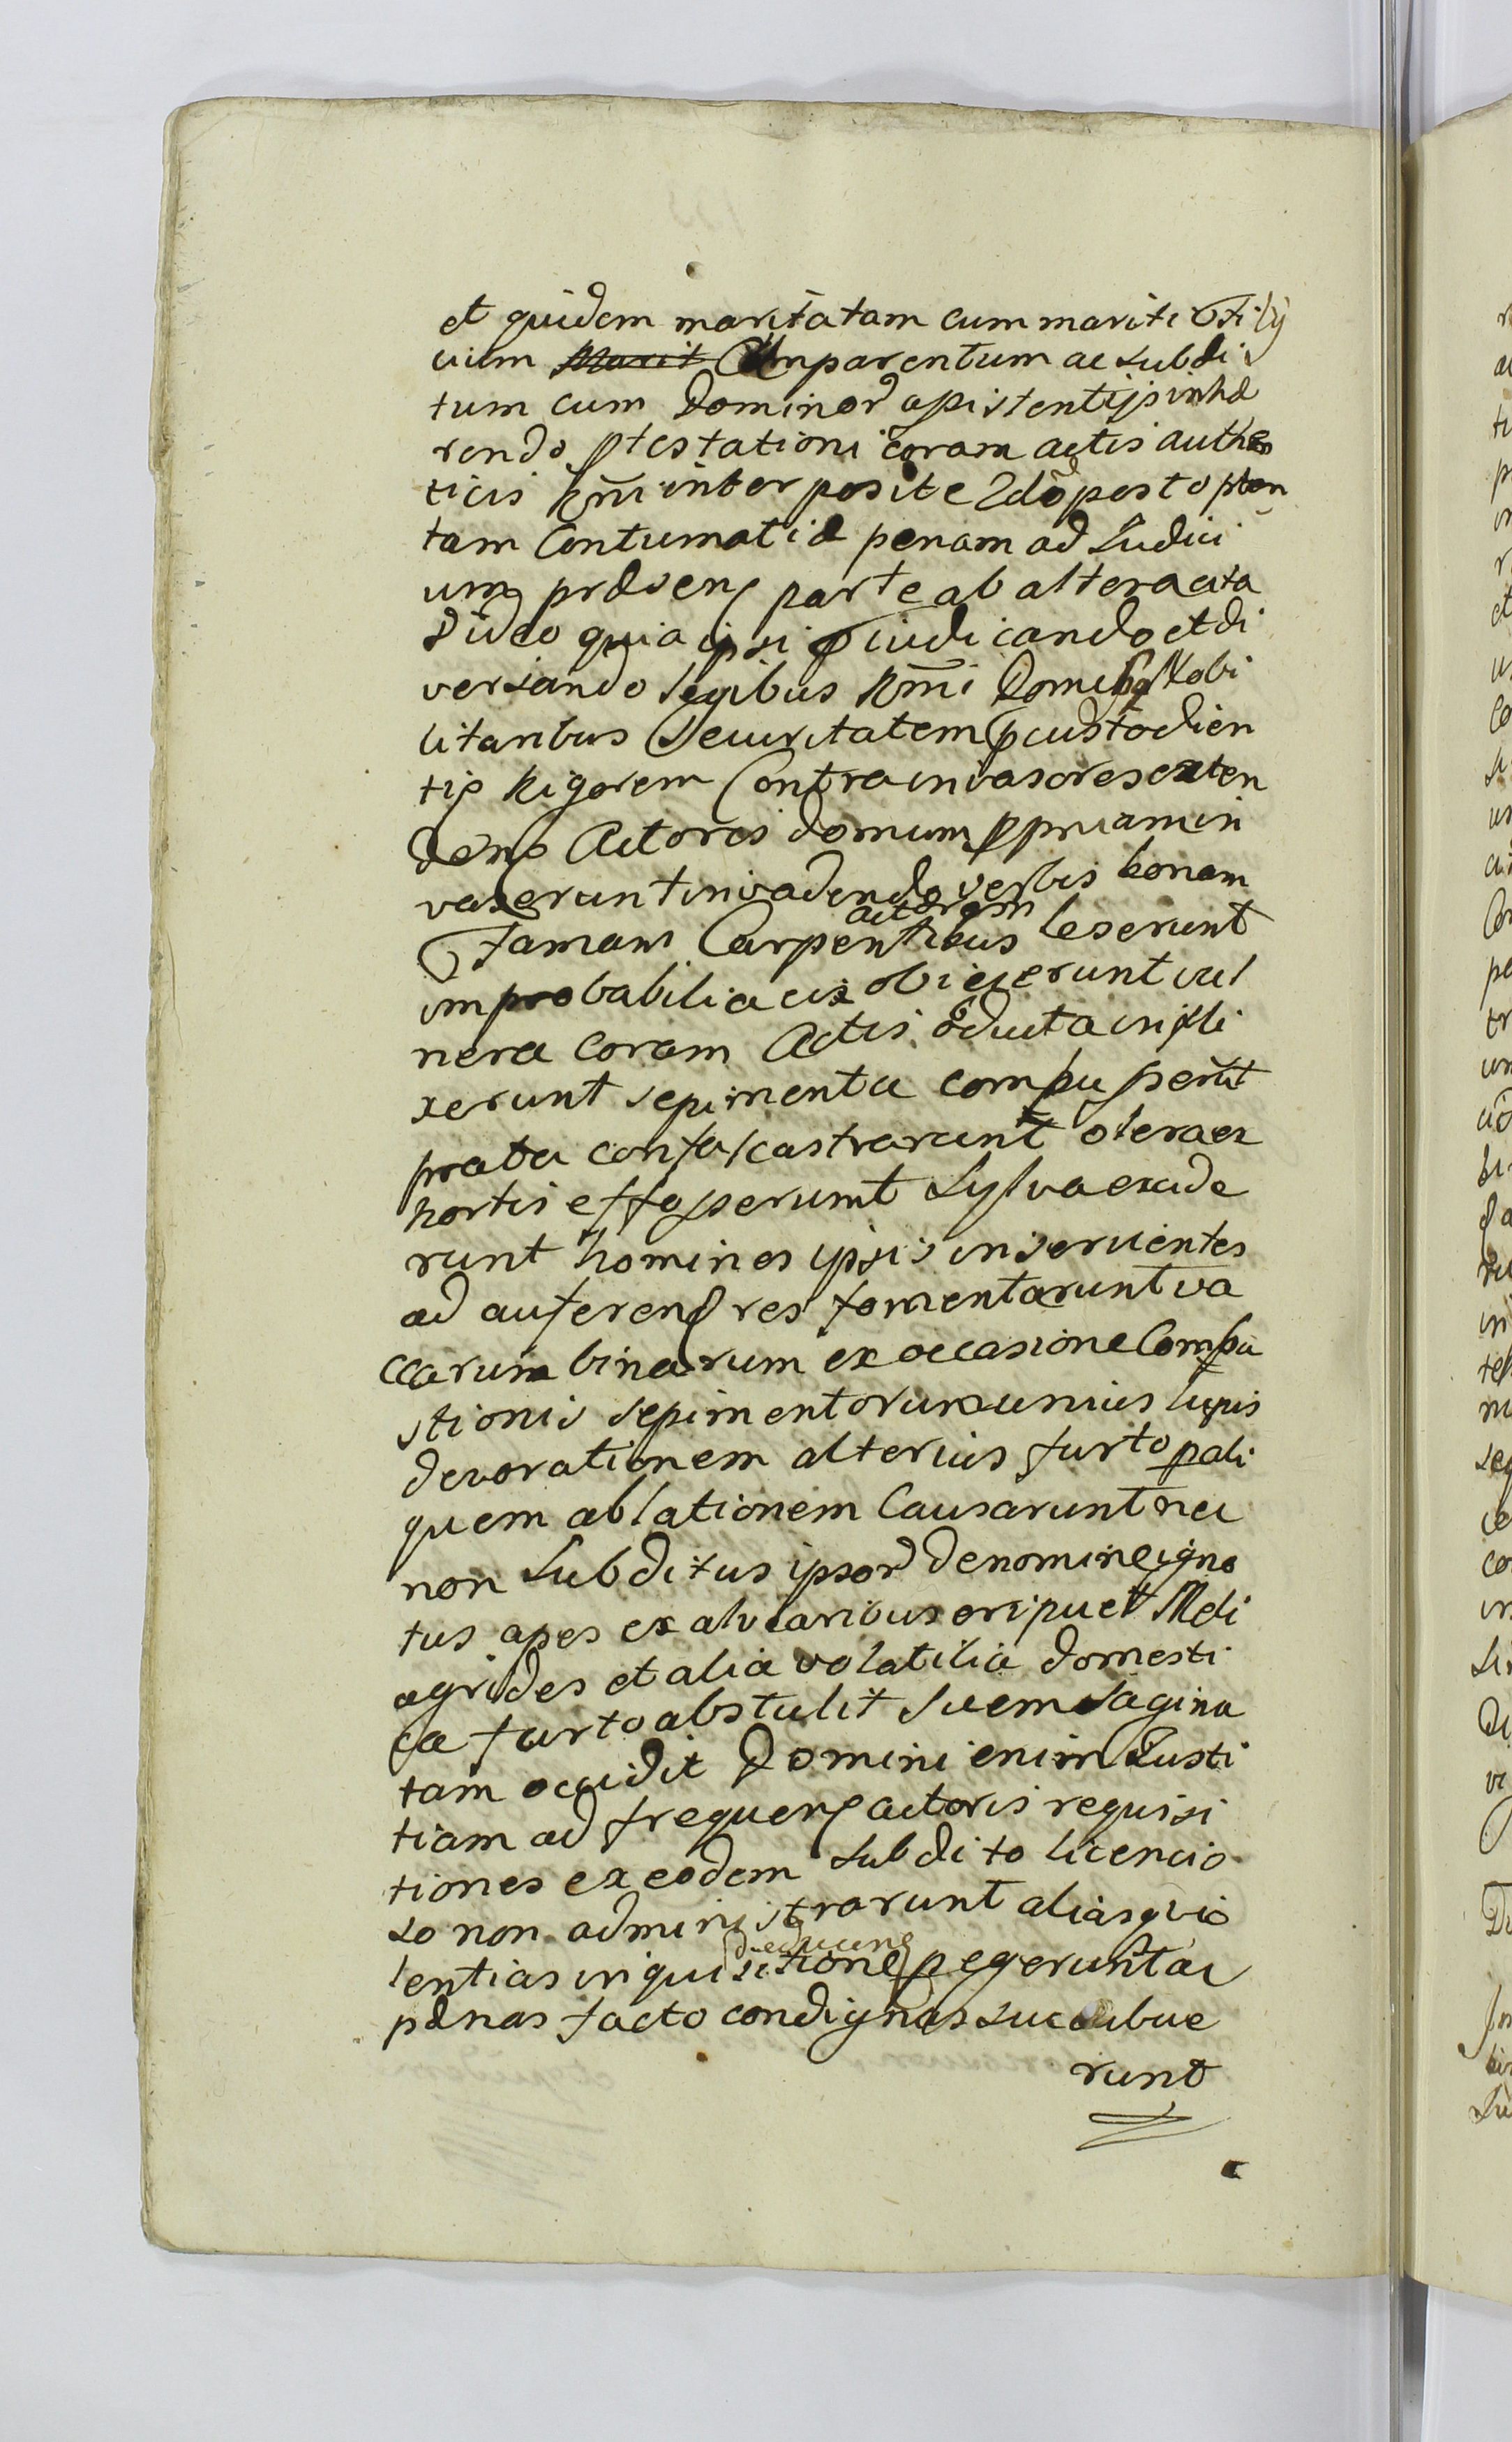 et quidem maritatam cum mariti et filij
uium Marit Comparentum ac subdi
tum cum Dominor assistentijs inhæ
rendo ptestationi coram actis authen
ticis Rni interposite 2do post opten
tam Contumatiæ penam ad Iudici
um præsens parte ab altera cita
d ideo quia ipsi piudicando et di
versando legibus Rmi Domibq Nobi
litaribus Securitatem pcustodien
tis Rigorem Contra invasores exten
dens Actoris domum ppriam in
vaserunt invadendo verbis bonam
actorem
Famam Carpentibus leserunt
improbabilia eis obiecerunt vul
nera Coram Actis educta infli
xerunt sepimenta compusserut
prata confalcastrarunt olera ex
hortis effosserunt Sylva excide
runt homines ipsis inservientes
ad auferend res fomentarunt va
ccarum binarum ex occasione Compu
stionis sepimentorum unius lupis
devorationem alterius furto pali
quem ablationem Causarunt nec
non Subditus ipsor de nomine igno
tus apes ex alvearibus eripuet Meli
agrides et alia volatilia domesti
ca furto abstulit Suem sagina
tam occidit Domini enim Iusti
tiam ad frequens actoris requisi
tiones ex eodem subdito licencio
so non administrarunt aliasq vio
deducens
lentias inquisitione pegerunt ac
pænas facto condignas succubue
runt